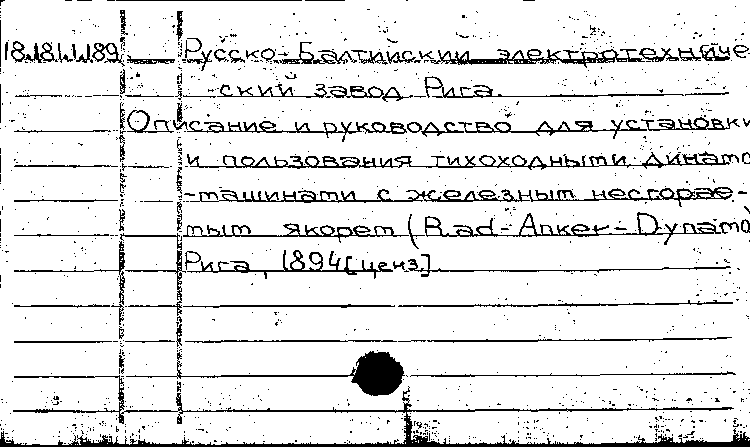 18.181.1.189 Русско-Балтийский электротехниче
-ский завод Рига.
Описание и руководство для установки
и пользования тихоходными динамо
-машинами с железным несгорае-
мым якорем (Rad-Anker-Dynamo)
Рига, 1894[ценз].